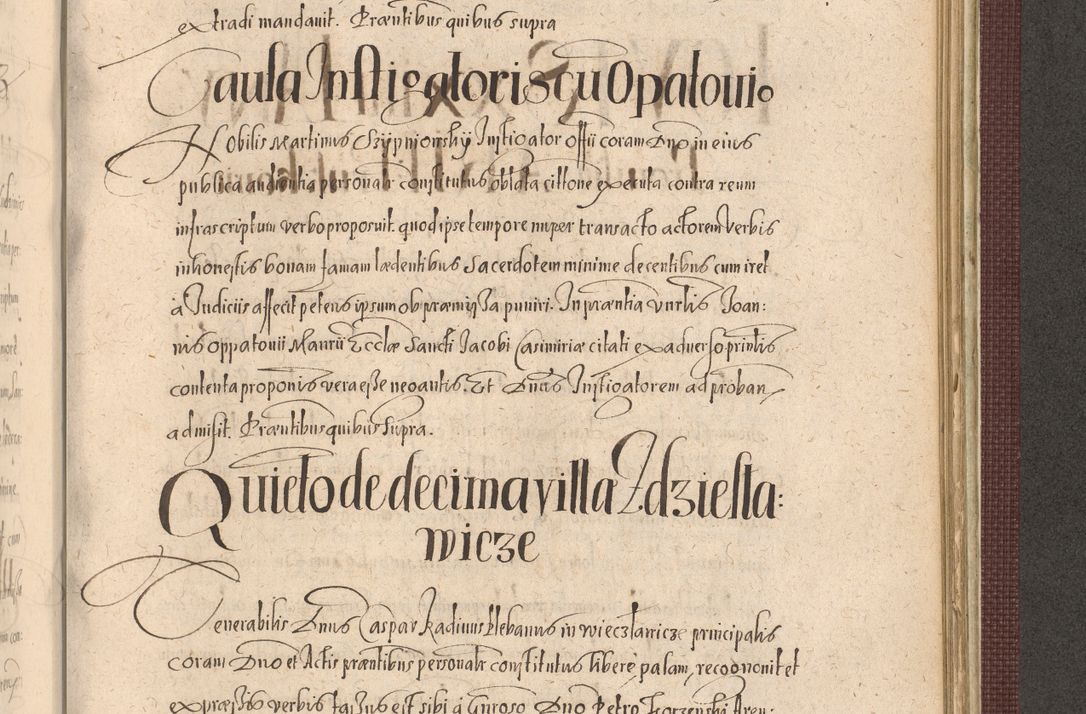 extradi mandauit. Præntibus quibus supra
Causa Instigatoris cu Opatouio
Nobilis Martinus Szypniowsky Instigator offii coram Dno in eius
publica audientia personalr constitutus oblata cittone executa contra reum
infrascriptum verbo proposuit. quod ipse tempore nuper transacto actorem verbis
inhonestis bonam famam lædentibus sacerdotem minime decentibus cum iret
a Judiciis affecit petens ipsum ob præmissa puniri. In præntia vnrlis Joan:
nis Oppatouii Manrū Ecclæ Sancti Jacobi Casimiriæ citati ex aduerso printis
contenta proponis vera esse negantis. Et Dnus Instigatorem ad proban
admisit. Præntibus quibus supra.
Quieto de decima villa Zdziesla:
wicze
Venerabilis Dnus Caspar Radinus Plebanus in Wieczlawicze principalis
coram Dno et Actis præntibus personalr constitutus libere palam, recognouit et
expræsso verbis fassus est sibi a Gnroso Dno Petro